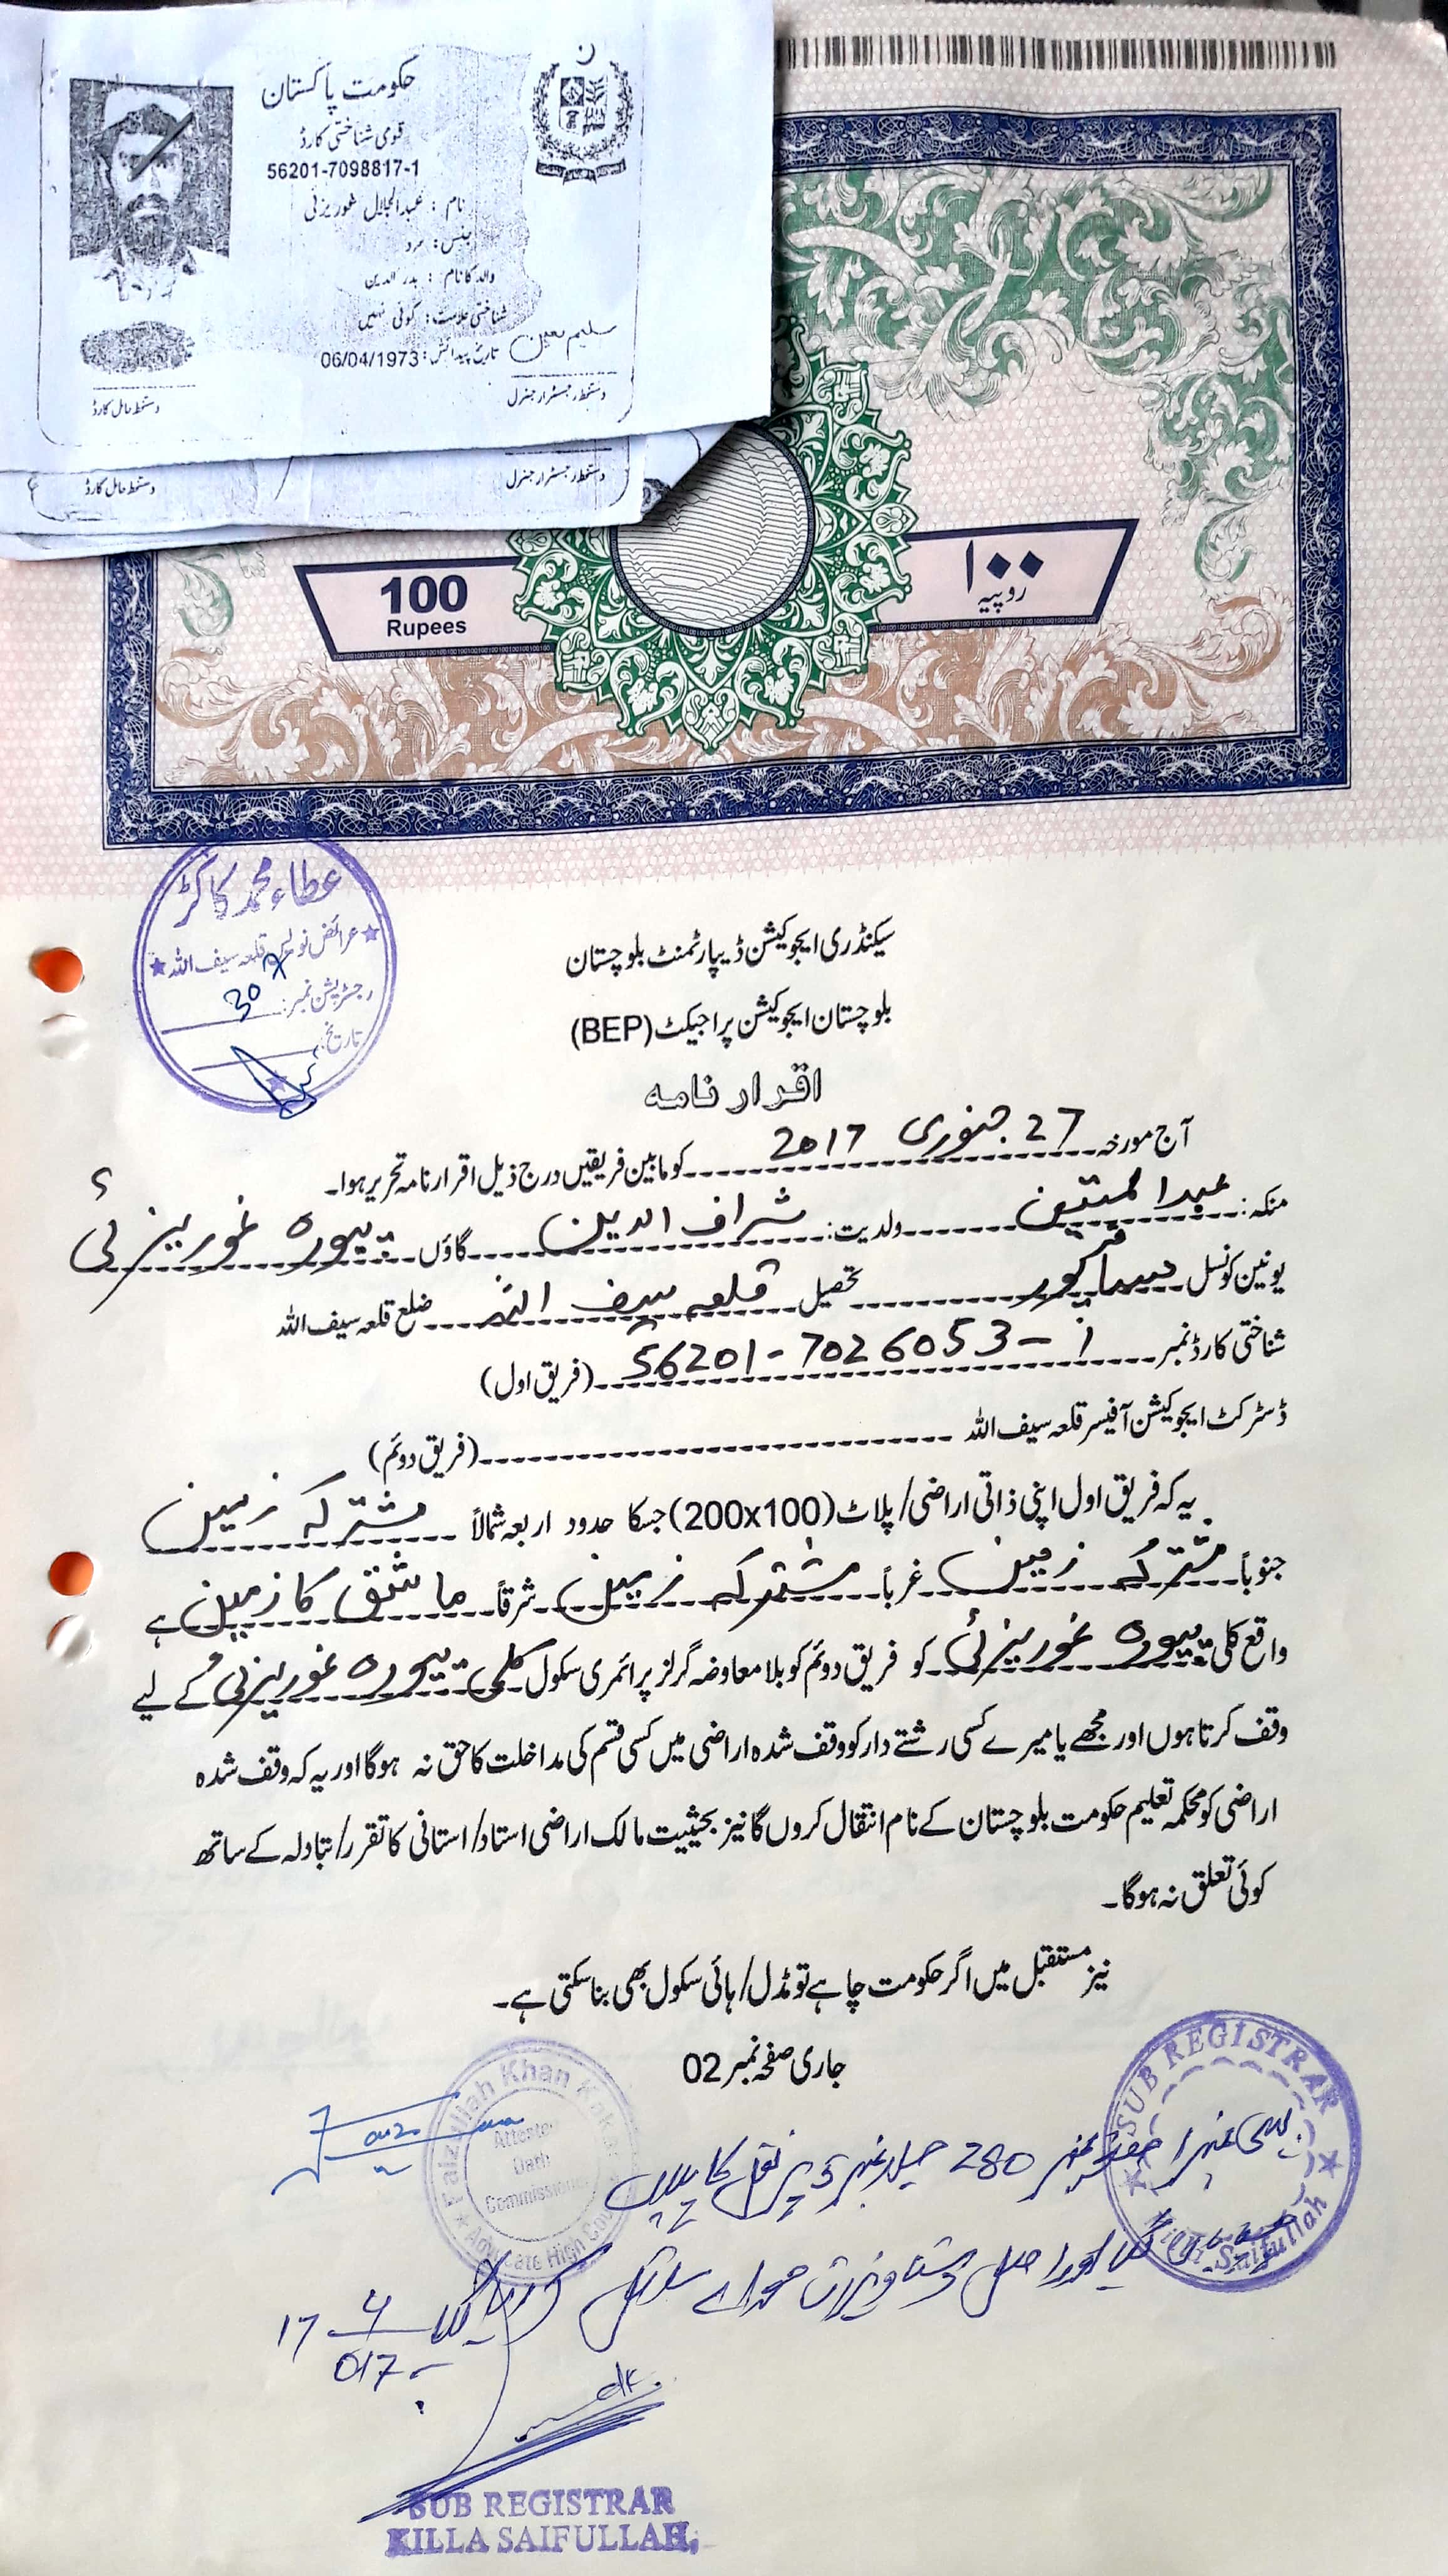 حکومت پاکستان
قومی شناختی کارڈ
56201-7098817-1
نام : عبدالجلال غوریزئی
جنس: مرد
والد کا نام : بدرالدین
شناختی علامت: کوئی نہیں
تاریخ پیدائش: 06/04/1973
دستخط حامل کارڈ
دستخط رجسٹرار جنرل
دستخط حامل کارڈ
دستخط رجسٹرار جنرل
100
Rupees
۱۰۰
روپیہ
عطاء محمد کاکڑ
عرائض نویس قلعہ سیف اللہ
رجسٹریشن نمبر:
تاریخ:
سیکنڈری ایجوکیشن ڈیپارٹمنٹ بلوچستان
بلوچستان ایجوکیشن پراجیکٹ (BEP)
اقرار نامہ
آج مورخہ 27 جنوری 2017 کو مابین فریقین درج ذیل اقرار نامہ تحریر ہوا۔
منکہ: عبدالمتین ولدیت: شراف الدین گاؤں غوریزئی
یونین کونسل تحصیل قلعہ سیف اللہ ضلع قلعہ سیف اللہ
شناختی کارڈ نمبر 56201-7026053-1 (فریق اول)
ڈسٹرکٹ ایجوکیشن آفیسر قلعہ سیف اللہ (فریق دوئم)
یہ کہ فریق اول اپنی ذاتی اراضی/پلاٹ (200x100) جسکا حدود اربعہ شمالاً مشترکہ زمین
جنوباً مشترکہ زمین غرباً مشترکہ زمین شرقاً کا زمین ہے
واقع کلی غوریزئی کو فریق دوئم کو بلا معاوضہ گرلز پرائمری سکول کلی غوریزئی کے لیے
وقف کرتا ہوں اور مجھے یا میرے کسی رشتے دار کو وقف شدہ اراضی میں کسی قسم کی مداخلت کا حق نہ ہوگا اور یہ کہ وقف شدہ
اراضی کو محکمہ تعلیم حکومت بلوچستان کے نام انتقال کروں گا نیز بحیثیت مالک اراضی استاد/استانی کا تقرر/تبادلہ کے ساتھ
کوئی تعلق نہ ہوگا۔
نیز مستقبل میں اگر حکومت چاہے تو مڈل/ہائی سکول بھی بنا سکتی ہے۔
جاری صفحہ نمبر 02
Faizullah Khan Kakar
Attester
Oath
Commissioner
Advocate High Court
SUB REGISTRAR
Saifullah
نمبر 1 صفحہ نمبر 280 جلد نمبر 5 پر نقل
گیا اور اصل دستاویزات
17 4
017
SUB REGISTRAR
KILLA SAIFULLAH,